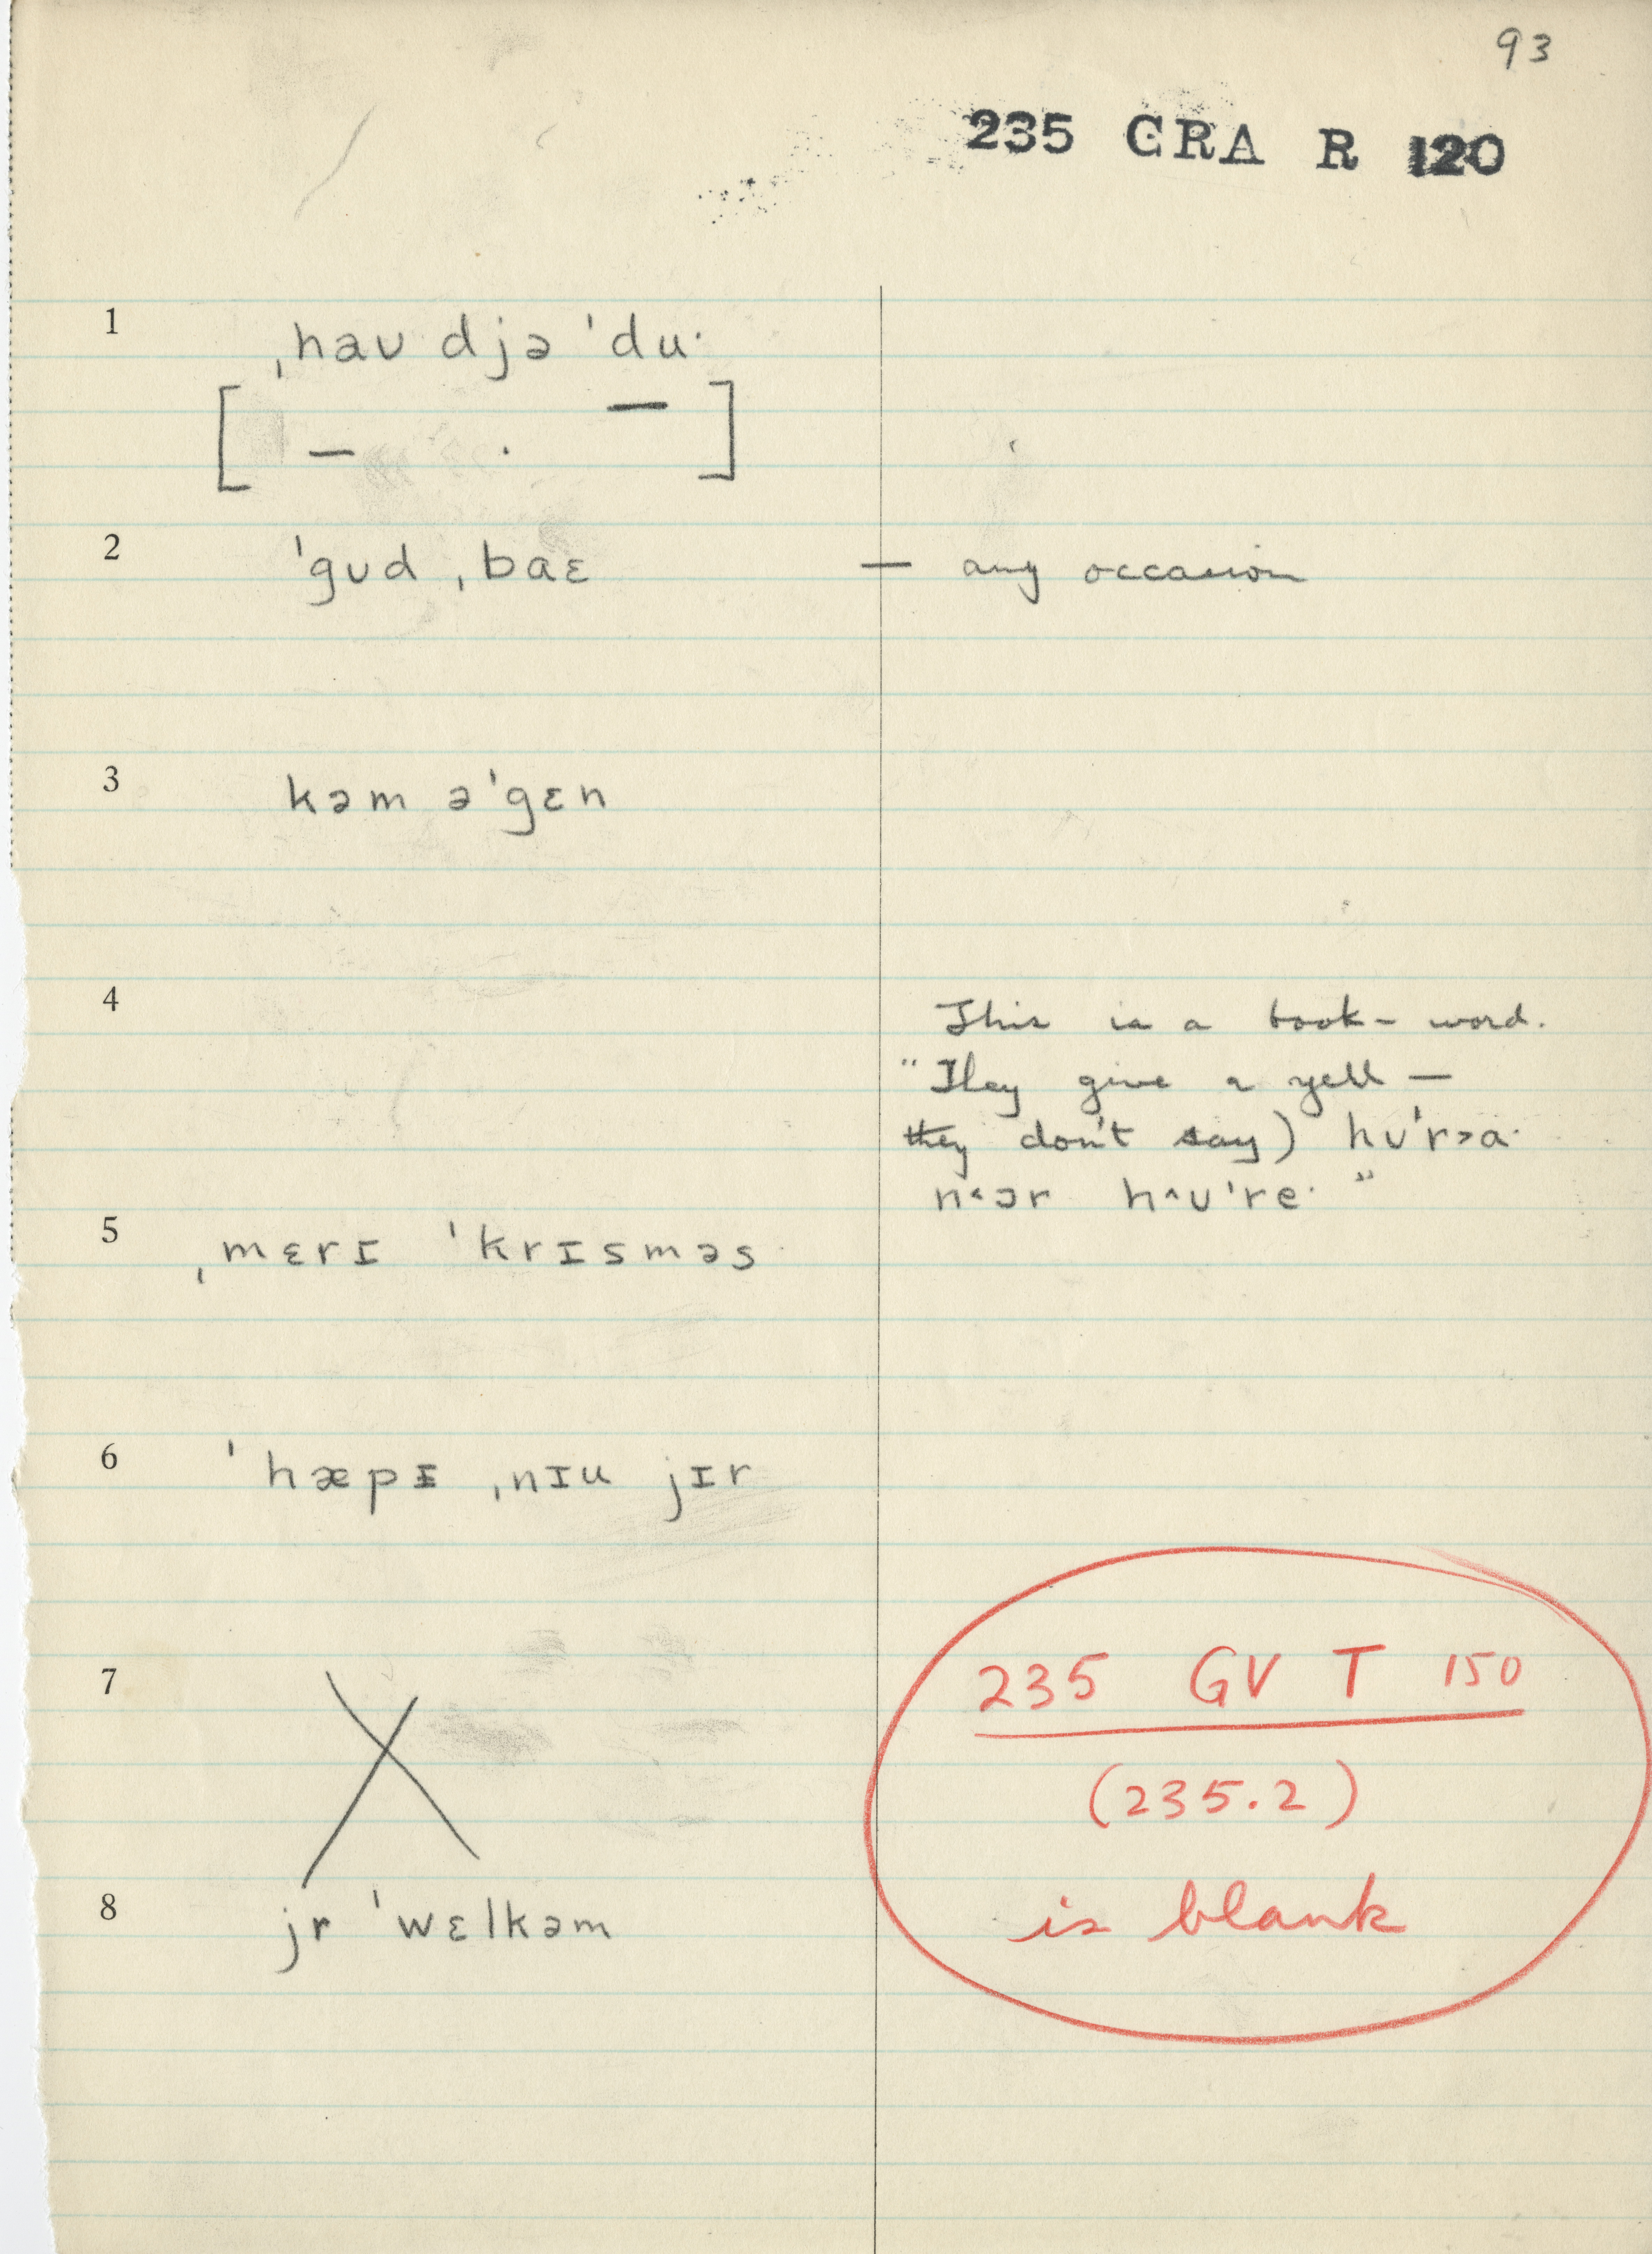 93
235 GRA R 120
1 ˌhaʊ djə ˈduˑ
[ – . – ]
2 ˈgʊd ˌbaɛ — any occasion
3 kəm əˈgɛn
4 This is a book-word.
"They give a yell —
they don't say) hʊˈr˃aˑ
n˂ɔr h^ʊˈreˑ"
5 ˌmɛrɪ ˈkrɪsməs
6 ˈhæpɪ ˌnɪu jɪr
7 X
235 GV T 150
(235.2)
8 jr ˈwɛlkəm
is blank